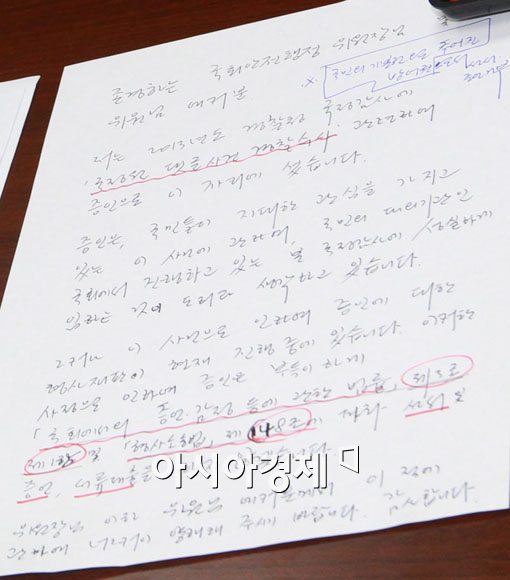 존경하는 국회안전행정 위원장님 및
위원님 여러분
※ 국민의 기본권으로 주어진
방어권
저는 2013년도 경찰청 국정감사에
「국정원 댓글사건 경찰수사」 관련하여
증인으로 이 자리에 섰습니다.
증인은, 국민들이 지대한 관심을 가지고
있는 이 사안에 관하여, 국민의 대의기관인
국회에서 진행하고 있는 본 국정감사에 성실하게
임하는 것이 도리라 생각하고 있습니다.
그러나 이 사안으로 인하여 증인에 대한
형사재판이 현재 진행 중에 있습니다. 이러한
사정으로 인하여 증인은 부득이하게
「국회에서의 증언·감정 등에 관한 법률」 제3조
제1항 및 「형사소송법」 제148조에 따라 선서 및
증언, 서류제출을
아시아경제
위원장님 이하 위원님 여러분께서 이 점에
관하여 너그러이 양해해 주시기 바랍니다. 감사합니다.